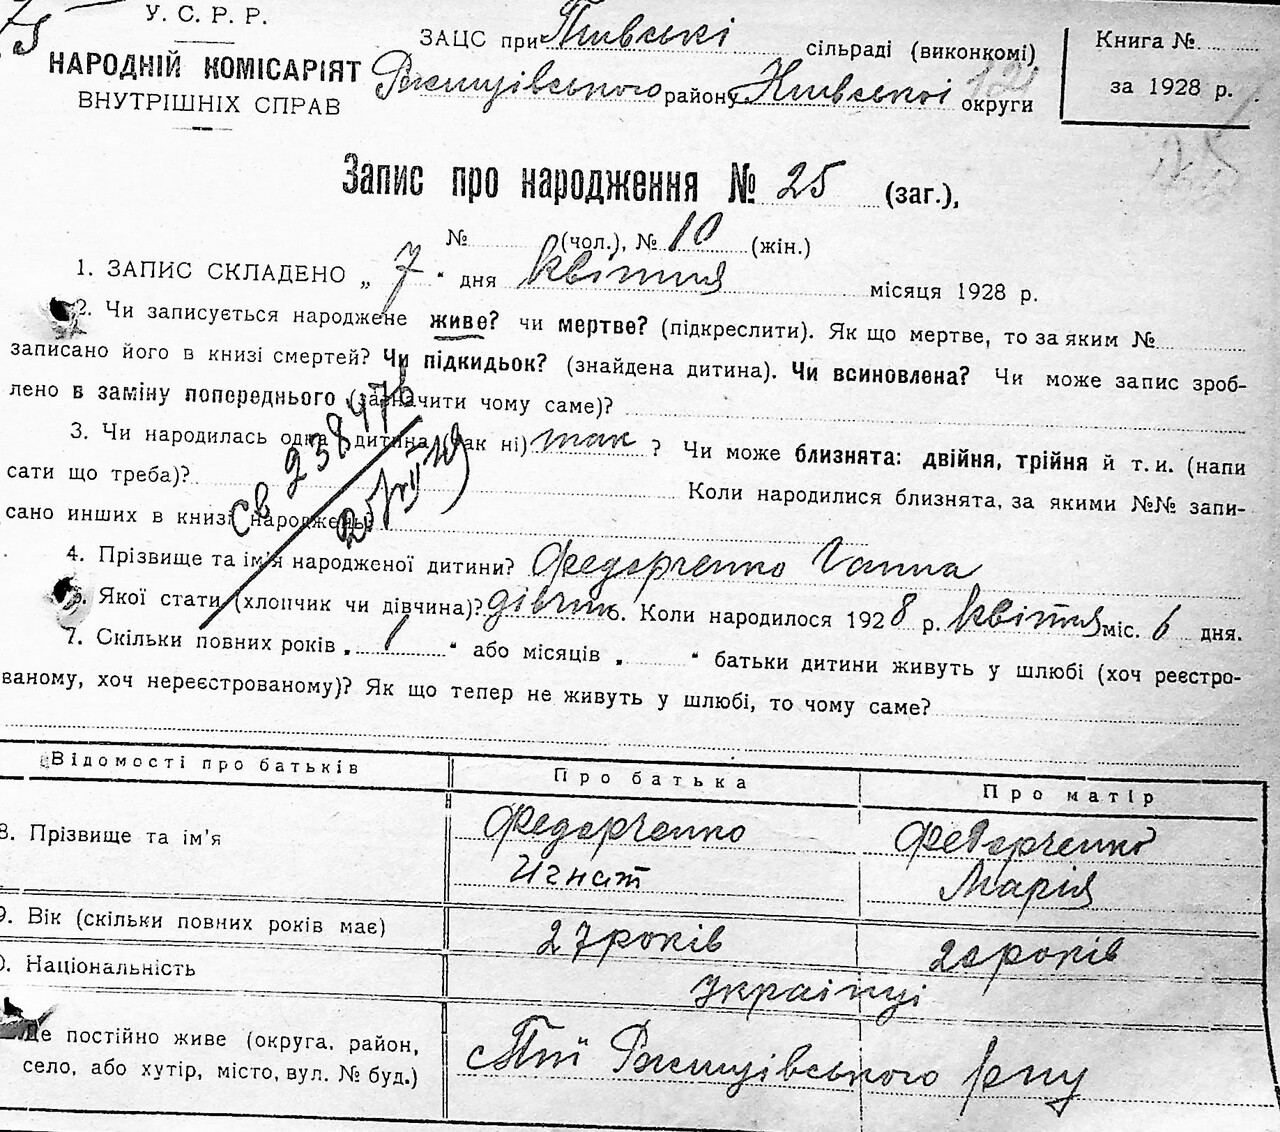 У. С. Р. Р.
НАРОДНІЙ КОМІСАРІЯТ
ВНУТРІШНІХ СПРАВ
ЗАЦС при Пиивські сільраді (виконкомі)
Ржищівського району Київської округи
Книга №
за 1928 р.
Запис про народження № 25 (заг.),
№ (чол.), № 10 (жін.)
1. ЗАПИС СКЛАДЕНО „ 7 “ дня квітня місяця 1928 р.
2. Чи записується народжене живе? чи мертве? (підкреслити). Як що мертве, то за яким №
записано його в книзі смертей? Чи підкидьок? (знайдена дитина). Чи всиновлена? Чи може запис зроб-
лено в заміну попереднього (зазначити чому саме)?
3. Чи народилась одна дитина (так ні) так ? Чи може близнята: двійня, трійня й т. и. (напи
сати що треба)? Коли народилися близнята, за якими №№ запи-
сано инших в книзі народжень?
св 238476
4. Прізвище та ім'я народженої дитини? Федорченко Ганна
Якої стати (хлопчик чи дівчина)? дівчин 6. Коли народилося 1928 р. квітня міс. 6 дня.
7. Скільки повних років „ 1 “ або місяців „ “ батьки дитини живуть у шлюбі (хоч реєстро-
ваному, хоч нереєстрованому)? Як що тепер не живуть у шлюбі, то чому саме?
Відомості про батьків Про батька Про матір
8. Прізвище та ім'я Федорченко Федорченко
Игнат Марія
9. Вік (скільки повних років має) 27 років 20 років
0. Національність Українці
Де постійно живе (округа, район,
село, або хутір, місто, вул. № буд.) с Пії Ржищівського рну